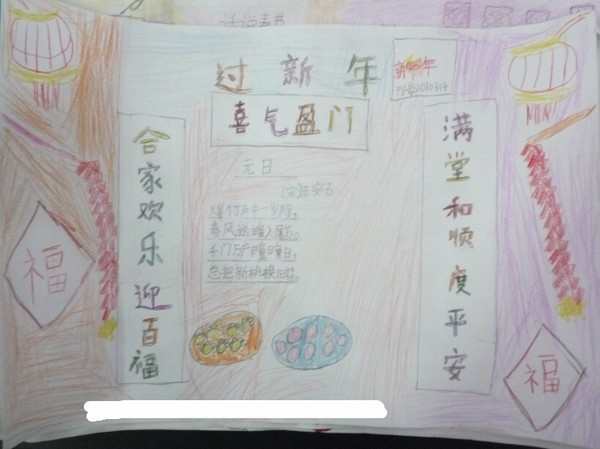 过新年
喜气盈门
满堂和顺度平安
合家欢乐迎百福
元日
王安石
爆竹声中一岁除,
春风送暖入屠苏。
千门万户曈曈日,
总把新桃换旧符。
福
福